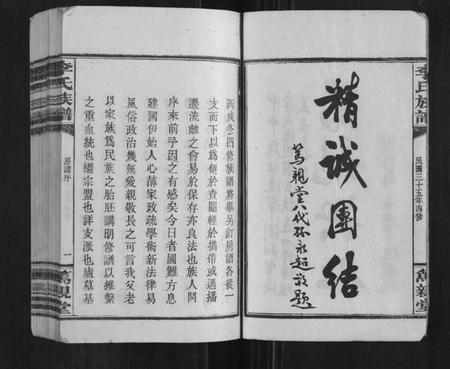 李氏族譜
民國三十五年四修
萬親堂
精誠團結
篤親堂八代孫永超敬題
丙戌冬四修族譜將畢另訂房譜各從一
支而下以為便於查閱輕於攜帶或遇播
遷流離之會易於保存亦良法也族人問
序來前予因之有感矣今日者國難方息
建國伊始人心薄家政疏學術新法律易
風俗政治幾無愛親敬長之可言我父老
以家族為民族之胚胎講明修譜以維繫
之重血統也繼宗盟也詳支派也廬墓基
李氏族譜
房譜序
一
萬親堂